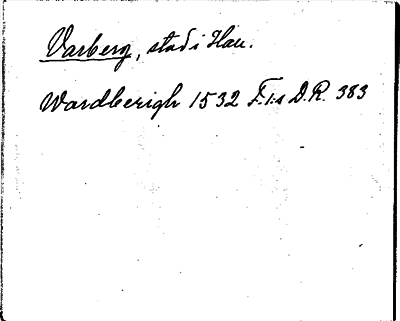 Varberg, stad i Hall.
Wardberigh 1532 F.1:s D.R. 383